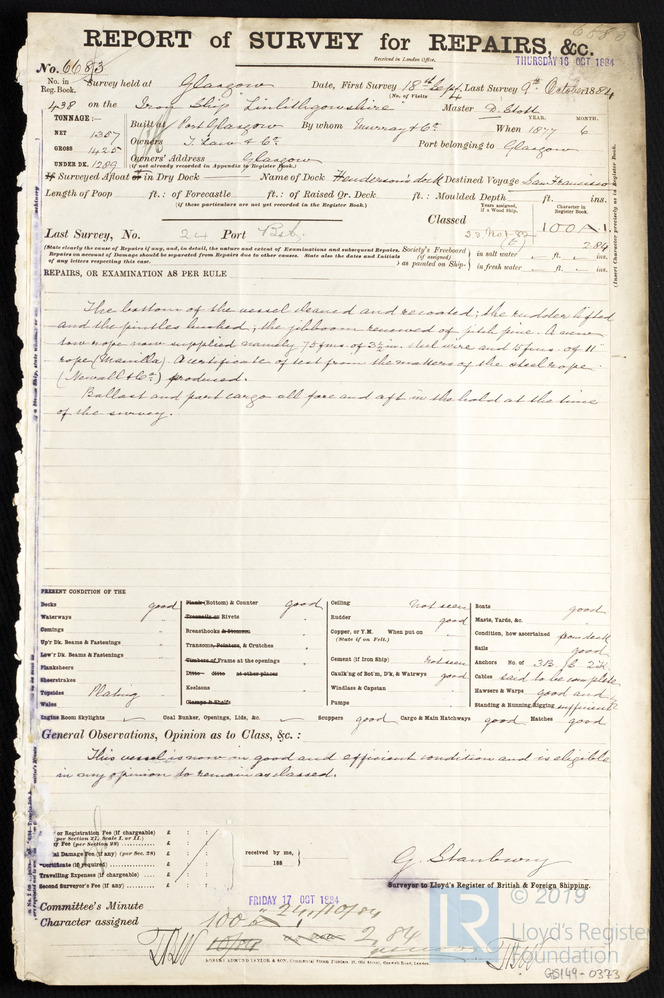 REPORT of SURVEY for REPAIRS, &c.
Received in London Office, THURSDAY 16 OCT 1884
No. 6683
No. in Reg. Book. Survey held at Glasgow Date, First Survey 18th Sept. Last Survey 9th October 1884
(No. of Visits 4
438 on the Iron Ship "Linlithgowshire" Master D. Stott
TONNAGE:—
NET 1357
GROSS 1425
UNDER DK. 1289
Built at Port Glasgow By whom Murray & Co. When 1877 6
YEAR. MONTH.
Owners T. Law & Co. Port belonging to Glasgow
Owners' Address Glasgow
(if not already recorded in Appendix to Register Book.)
If Surveyed Afloat or in Dry Dock Name of Dock Henderson's dock Destined Voyage San Francisco
Length of Poop ft.: of Forecastle ft.: of Raised Qr. Deck ft.: Moulded Depth ft. ins.
(If these particulars are not yet recorded in the Register Book.)
Years assigned, if a Wood Ship. Character in Register Book.
Classed 100A1.
Last Survey, No. 24 Port
2.84
(State clearly the cause of Repairs if any, and, in detail, the nature and extent of Examinations and subsequent Repairs. Repairs on account of Damage should be separated from Repairs due to other causes. State also the dates and Initials of any letters respecting this case.
Society's Freeboard (if assigned) as painted on Ship— in salt water ft. ins.
in fresh water ft. ins.
REPAIRS, OR EXAMINATION AS PER RULE
The bottom of the vessel cleaned and recoated; the rudder lifted
and the pintles bushed; the jibboom renewed of pitch pine. A new
tow rope now supplied namely 75 fms. of 3½ in. steel wire and 15 fms. of 11"
rope (Manilla). A certificate of test from the makers of the steel rope
(Newall & Co.) produced.
Ballast and part cargo all fore and aft in the hold at the time
of the survey.
PRESENT CONDITION OF THE
Decks good
Waterways "
Comings "
Up'r Dk. Beams & Fastenings "
Low'r Dk. Beams & Fastenings
Planksheers
Sheerstrakes
Topsides Plating
Wales
Engine Room Skylights
Plank (Bottom) & Counter good
Treenails or Rivets "
Breasthooks & Stemson "
Transoms, Pointers, & Crutches "
Timbers of Frame at the openings "
Ditto ditto at other places
Keelsons
Clamps & Shelfs
Coal Bunker, Openings, Lids, &c.
Ceiling Not seen
Rudder good
Copper, or Y.M. When put on
(State if on Felt.)
Cement (if Iron Ship) Not seen
Caulk'ng of Bot'm, D'k, & Watrwys good
Windlass & Capstan "
Pumps "
Scuppers good Cargo & Main Hatchways good Hatches good
Boats good
Masts, Yards, &c. "
Condition, how ascertained from deck
Sails good
Anchors No. of 3B. 1S. 2K.
Cables said to be complete
Hawsers & Warps good and
Standing & Running Rigging sufficient
General Observations, Opinion as to Class, &c. :
This vessel is now in good and efficient condition and is eligible
in my opinion to remain as classed.
or Registration Fee (if chargeable) £ : :
(per Section 27, Scale I. or II.)
Fee (per Section 28) £ : :
Damage Fee (if any) (per Sec. 28) £ : :
Certificate (if required) £ : :
Travelling Expenses (if chargeable) £ : :
Second Surveyor's Fee (if any) £ : :
received by me,
188
G. Stanbury
Surveyor to Lloyd's Register of British & Foreign Shipping.
Committee's Minute FRIDAY 17 OCT 1884
Character assigned 100A 24/10/84
2.84
© 2019
LR Lloyd's Register
Foundation
GS149-0373